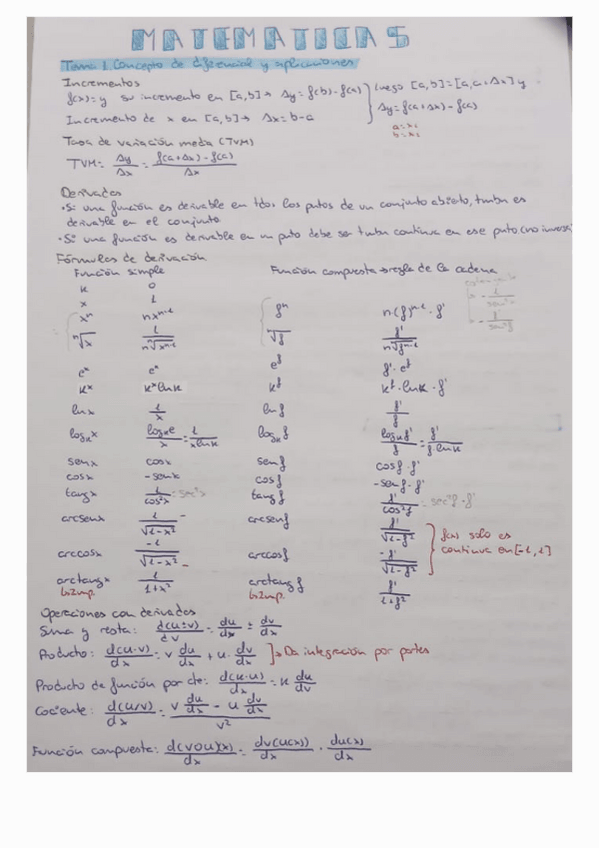 MATEMATICAS
Tema 1. Concepto de diferencial y aplicaciones
Incrementos
f(x)=y su incremento en [a,b]→ Δy = f(b)-f(a) } luego [a,b]=[a,a+Δx] y
Incremento de x en [a,b]→ Δx=b-a Δy=f(a+Δx)-f(a)
a=x₁
Tasa de variación media (TVM)
TVM= Δy/Δx = f(a+Δx)-f(a)/Δx
Derivadas
·Si una función es derivable en tdos los putos de un conjunto abierto, tmbn es
derivable en el conjunto.
·Si una función es derivable en un puto debe ser tmbn continua en ese puto (no inversa)
Fórmulas de derivación
Función simple Función compuesta→regla de la cadena
k 0
x 1
xⁿ nxⁿ⁻¹ fⁿ n(f)ⁿ⁻¹·f'
ⁿ√x 1/n ⁿ√xⁿ⁻¹ ⁿ√f f'/n ⁿ√fⁿ⁻¹
eˣ eˣ eᶠ f'·eᶠ
kˣ kˣ lnk kᶠ kᶠ·lnk·f'
lnx 1/x lnf f'/f
logₖx logₖe/x = 1/x lnk logₖf logₖe f'/f = f'/f·lnk
senx cosx senf cosf·f'
cosx -senx cosf -senf·f'
tangx 1/cos²x = sec²x tangf f'/cos²f = sec²f·f'
arcsenx 1/√1-x² arcsenf f'/√1-f² } f(x) solo es
arccosx -1/√1-x² arccosf -f'/√1-f² continua en [-1,1]
arctangx 1/1+x² arctangf f'/1+f²
↳Imp. ↳Imp.
Operaciones con derivadas
Suma y resta: d(u±v)/dv = du/dx ± dv/dx
Producto: d(u·v)/dx = v du/dx + u· dv/dx ]→Da integración por partes
Producto de función por cte: d(k·u)/dx = k du/dv
Cociente: d(u/v)/dx = v du/dx - u dv/dx / v²
Función compuesta: d(v∘u)(x)/dx = dv(u(x))/dx · du(x)/dx